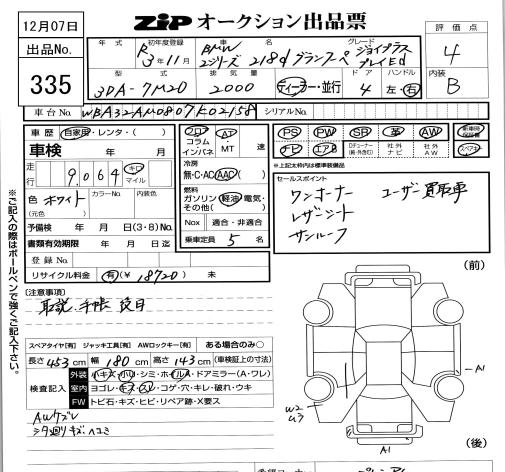 12月07日
ZIP オークション出品票
出品No.
335
年式
初年度登録
車名
グレード
R3年11月
BMW
2シリーズ 218d グランクーペ
ジョイプラス
型式
排気量
ドア
ハンドル
3DA-7M20
2000
ディーラー・並行
4
左・右
評価点
4
内装
B
車台No.
WBA32AM0807K02158
シリアルNo.
車歴
自家用・レンタ・( )
車検
年 月
走行
9,064
キロ
マイル
色
ホワイト
カラーNo.
内装色
(元色 )
予備検 年 月 日(3・8)No.
書類有効期限 年 月 日迄
登録No.
リサイクル料金 有(¥ 18720 ) 未
フロア
コラム
インパネ
AT
MT
速
冷房
無・C・AC・AAC( )
燃料
ガソリン・軽油・電気・
その他( )
Nox 適合・非適合
乗車定員 5 名
PS
PW
SR
革
AW
ナビ
エアB
Dチューナー
(純・外含む)
社外
ナビ
社外
AW
新車時
保証書
スペアキー
※上記太枠内は標準装備品
セールスポイント
ワンオーナー ユーザー買取車
レザーシート
サンルーフ
※ご記入の際はボールペンで強くご記入下さい。
[注意事項]
取説、手帳 後日
スペアタイヤ[有] ジャッキ工具[有] AWロックキー[有] ある場合のみ○
長さ 453 cm 幅 180 cm 高さ 143 cm (車検証上の寸法)
検査記入
外装 小キズ・小U・シミ・ホイルA・ドアミラー(A・ワレ)
室内 ヨゴレ・キズ・スレ・コゲ・穴・キレ・破れ・ウキ
FW トビ石・キズ・ヒビ・リペア跡・X要ス
AWケズレ
シタ廻りキズ・ヘコミ
(前)
A1
W2
U3
A1
(後)